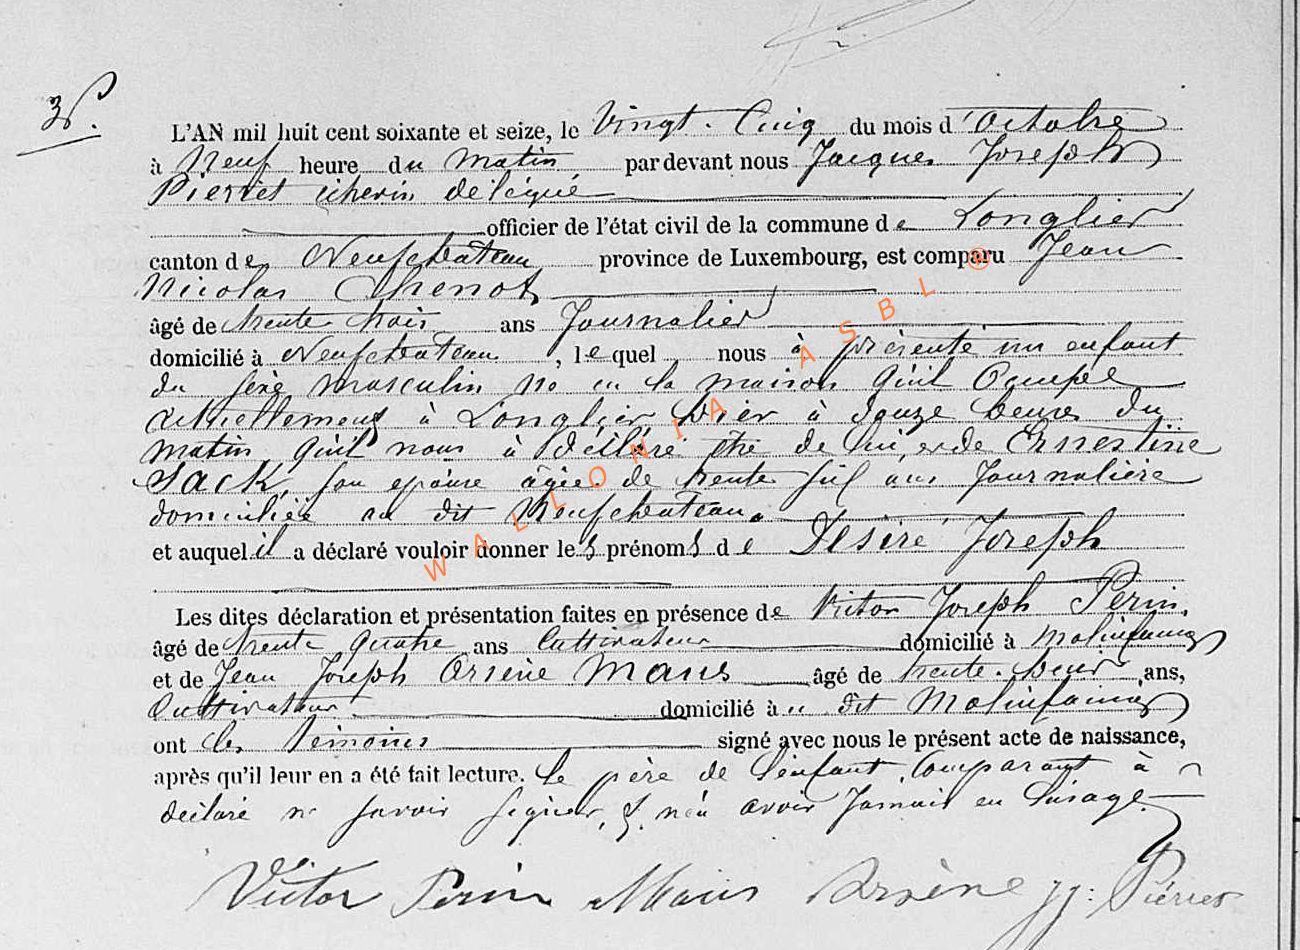 35.
L'AN mil huit cent soixante et seize, le Vingt. Cinq du mois d'Octobre
à Neuf heure du matin par devant nous Jacques Joseph
Pierret échevin délégué
officier de l'état civil de la commune de Longlier
canton de Neufchateau province de Luxembourg, est comparu Jean
Nicolas Chenot
âgé de trente trois ans Journalier
domicilié à Neufchateau, lequel nous à présenté un enfant
du sexe masculin né en la maison qu'il Occupe
actuellement à Longlier, hier à douze heures du
matin qu'il nous à déclaré être de lui, et de Ernestine
Jack, son épouse âgée de trente six ans Journalière
domiciliée au dit Neufchateau.
et auquel il a déclaré vouloir donner les prénoms de Désiré Joseph
Les dites déclaration et présentation faites en présence de Victor Joseph Perin,
âgé de trente quatre ans Cultivateur domicilié à Molinfaing
et de Jean Joseph Arsène Maus âgé de trente-deux ans,
Cultivateur domicilié à u dit Molinfaing
ont les témoins signé avec nous le présent acte de naissance,
après qu'il leur en a été fait lecture. Le père de l'enfant, Comparant à
déclaré ne savoir signer, avoir Jamais eu l'usage.
Victor Perin Maus Arsène JJ: Pierret
WALLONIA ASBL ®